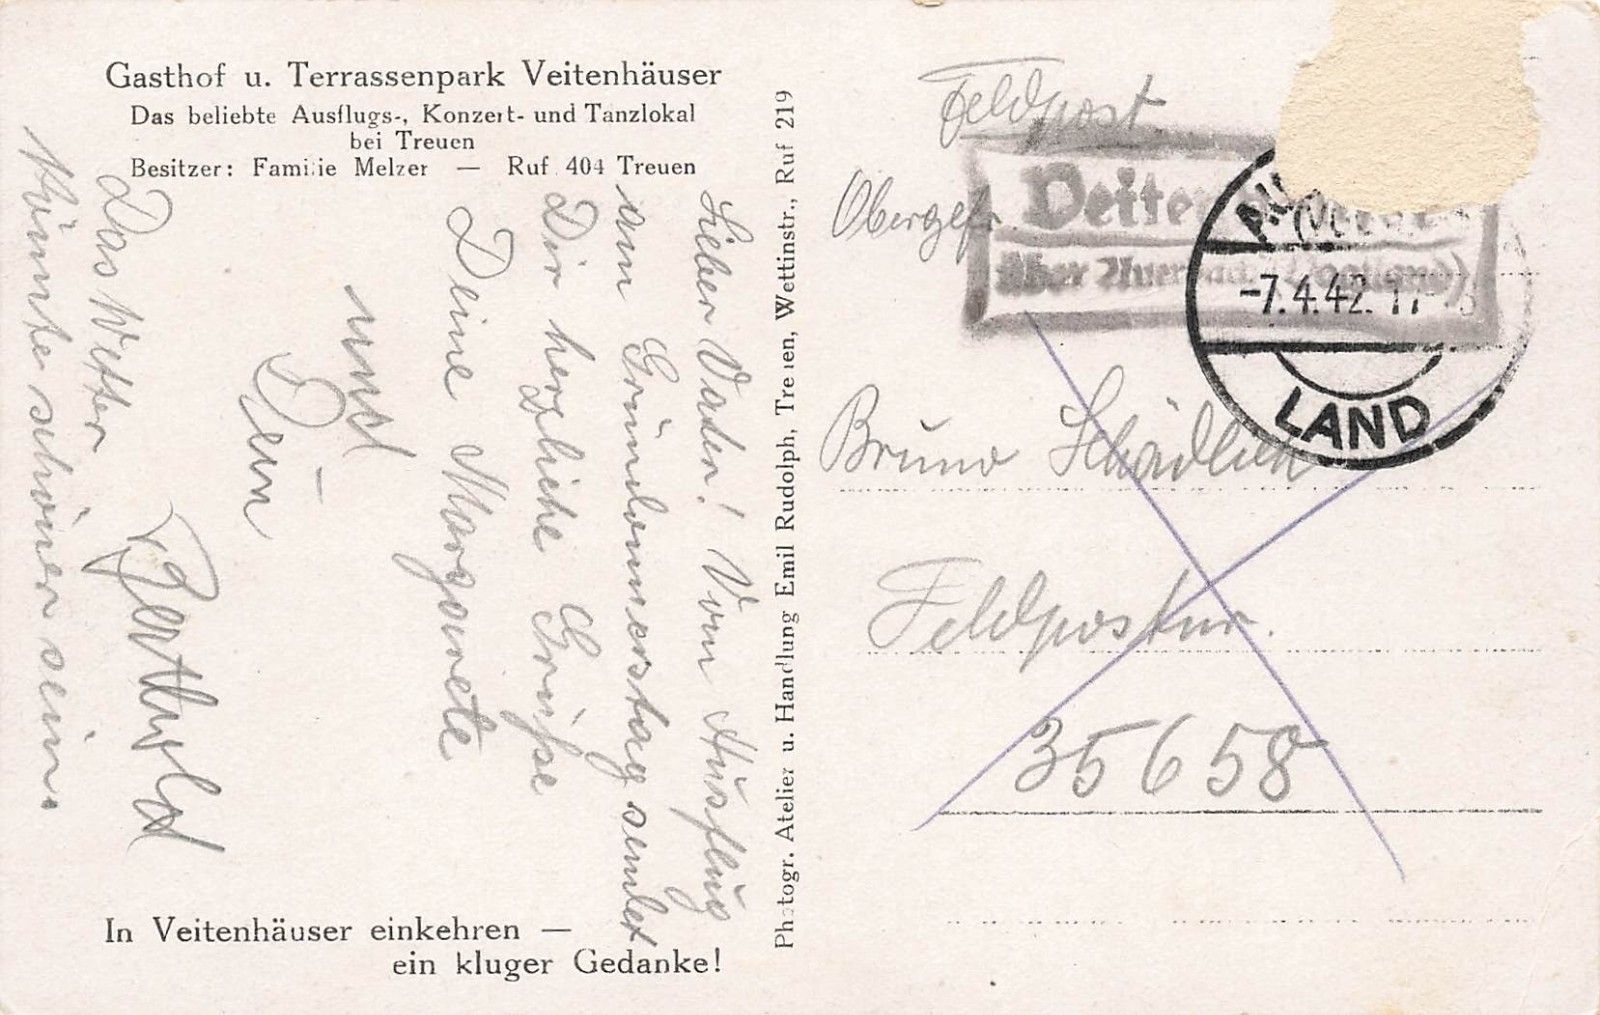 Gasthof u. Terrassenpark Veitenhäuser
Das beliebte Ausflugs-, Konzert- und Tanzlokal
bei Treuen
Besitzer: Familie Melzer — Ruf 404 Treuen
Lieber Vater! Vom Ausflug
am Gründonnerstag sendet
Dir herzliche Grüsse
Deine Margarete
und
Dein
Berthold
Das Wetter
könnte schöner sein.
In Veitenhäuser einkehren —
ein kluger Gedanke!
Photogr. Atelier u. Handlung Emil Rudolph, Treuen, Wettinstr., Ruf 219
Feldpost
Obergefr.
über Auerbach (Vogtland)
-7.4.42.
LAND
Bruno Schädlich
Feldpostnr.
35658